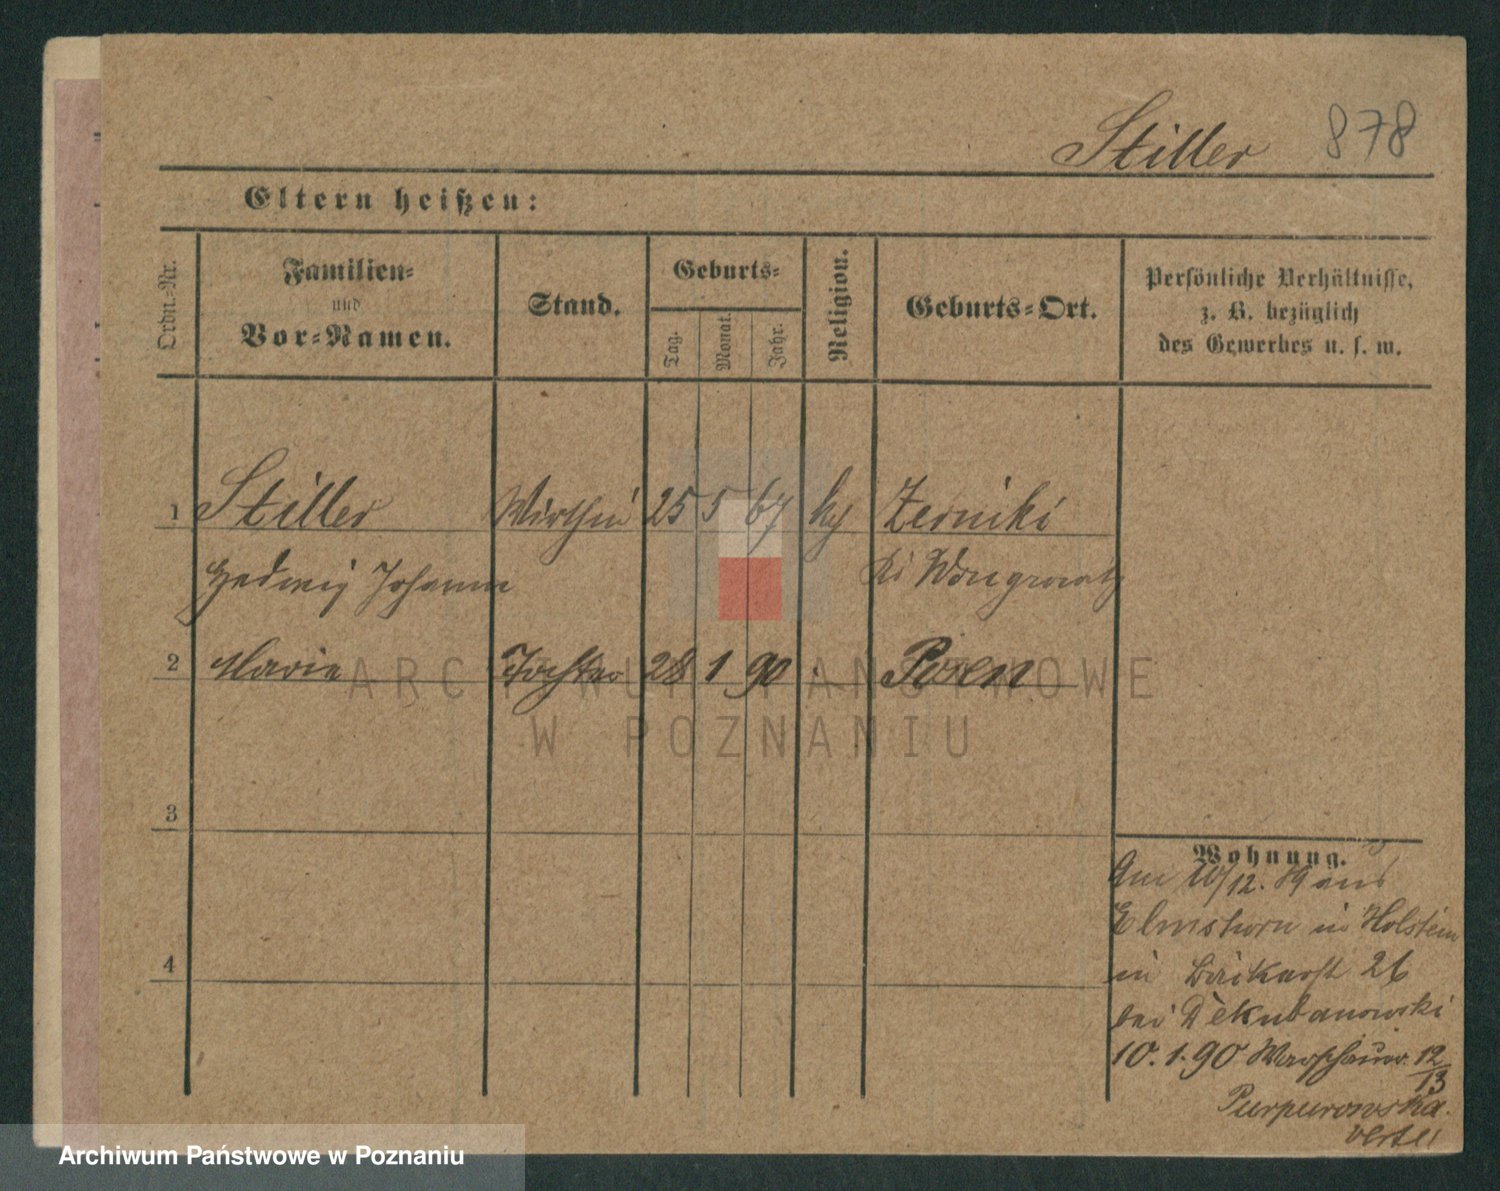 Stiller 878
Eltern heißen:
Ordn.-Nr.
Familien-
und
Vor-Namen.
Stand.
Geburts-
Tag.
Monat.
Jahr.
Religion.
Geburts-Ort.
Persönliche Verhältnisse,
z. B. bezüglich
des Gewerbes u. s. w.
1 Stiller Wirthin 25 5 67 Zerniki
Hedwig Johanna Wongrowitz
2 Marie Tochter 28 1 90 Posen
ARCHIWUM PAŃSTWOWE
W POZNANIU
3
4
Wohnung.
Am 10/12. 89 aus
Elmshorn in Holstein
in 26
bei Dekubanowski
10.1.90 Warschauer. 12/13
Purpurowska.
Archiwum Państwowe w Poznaniu